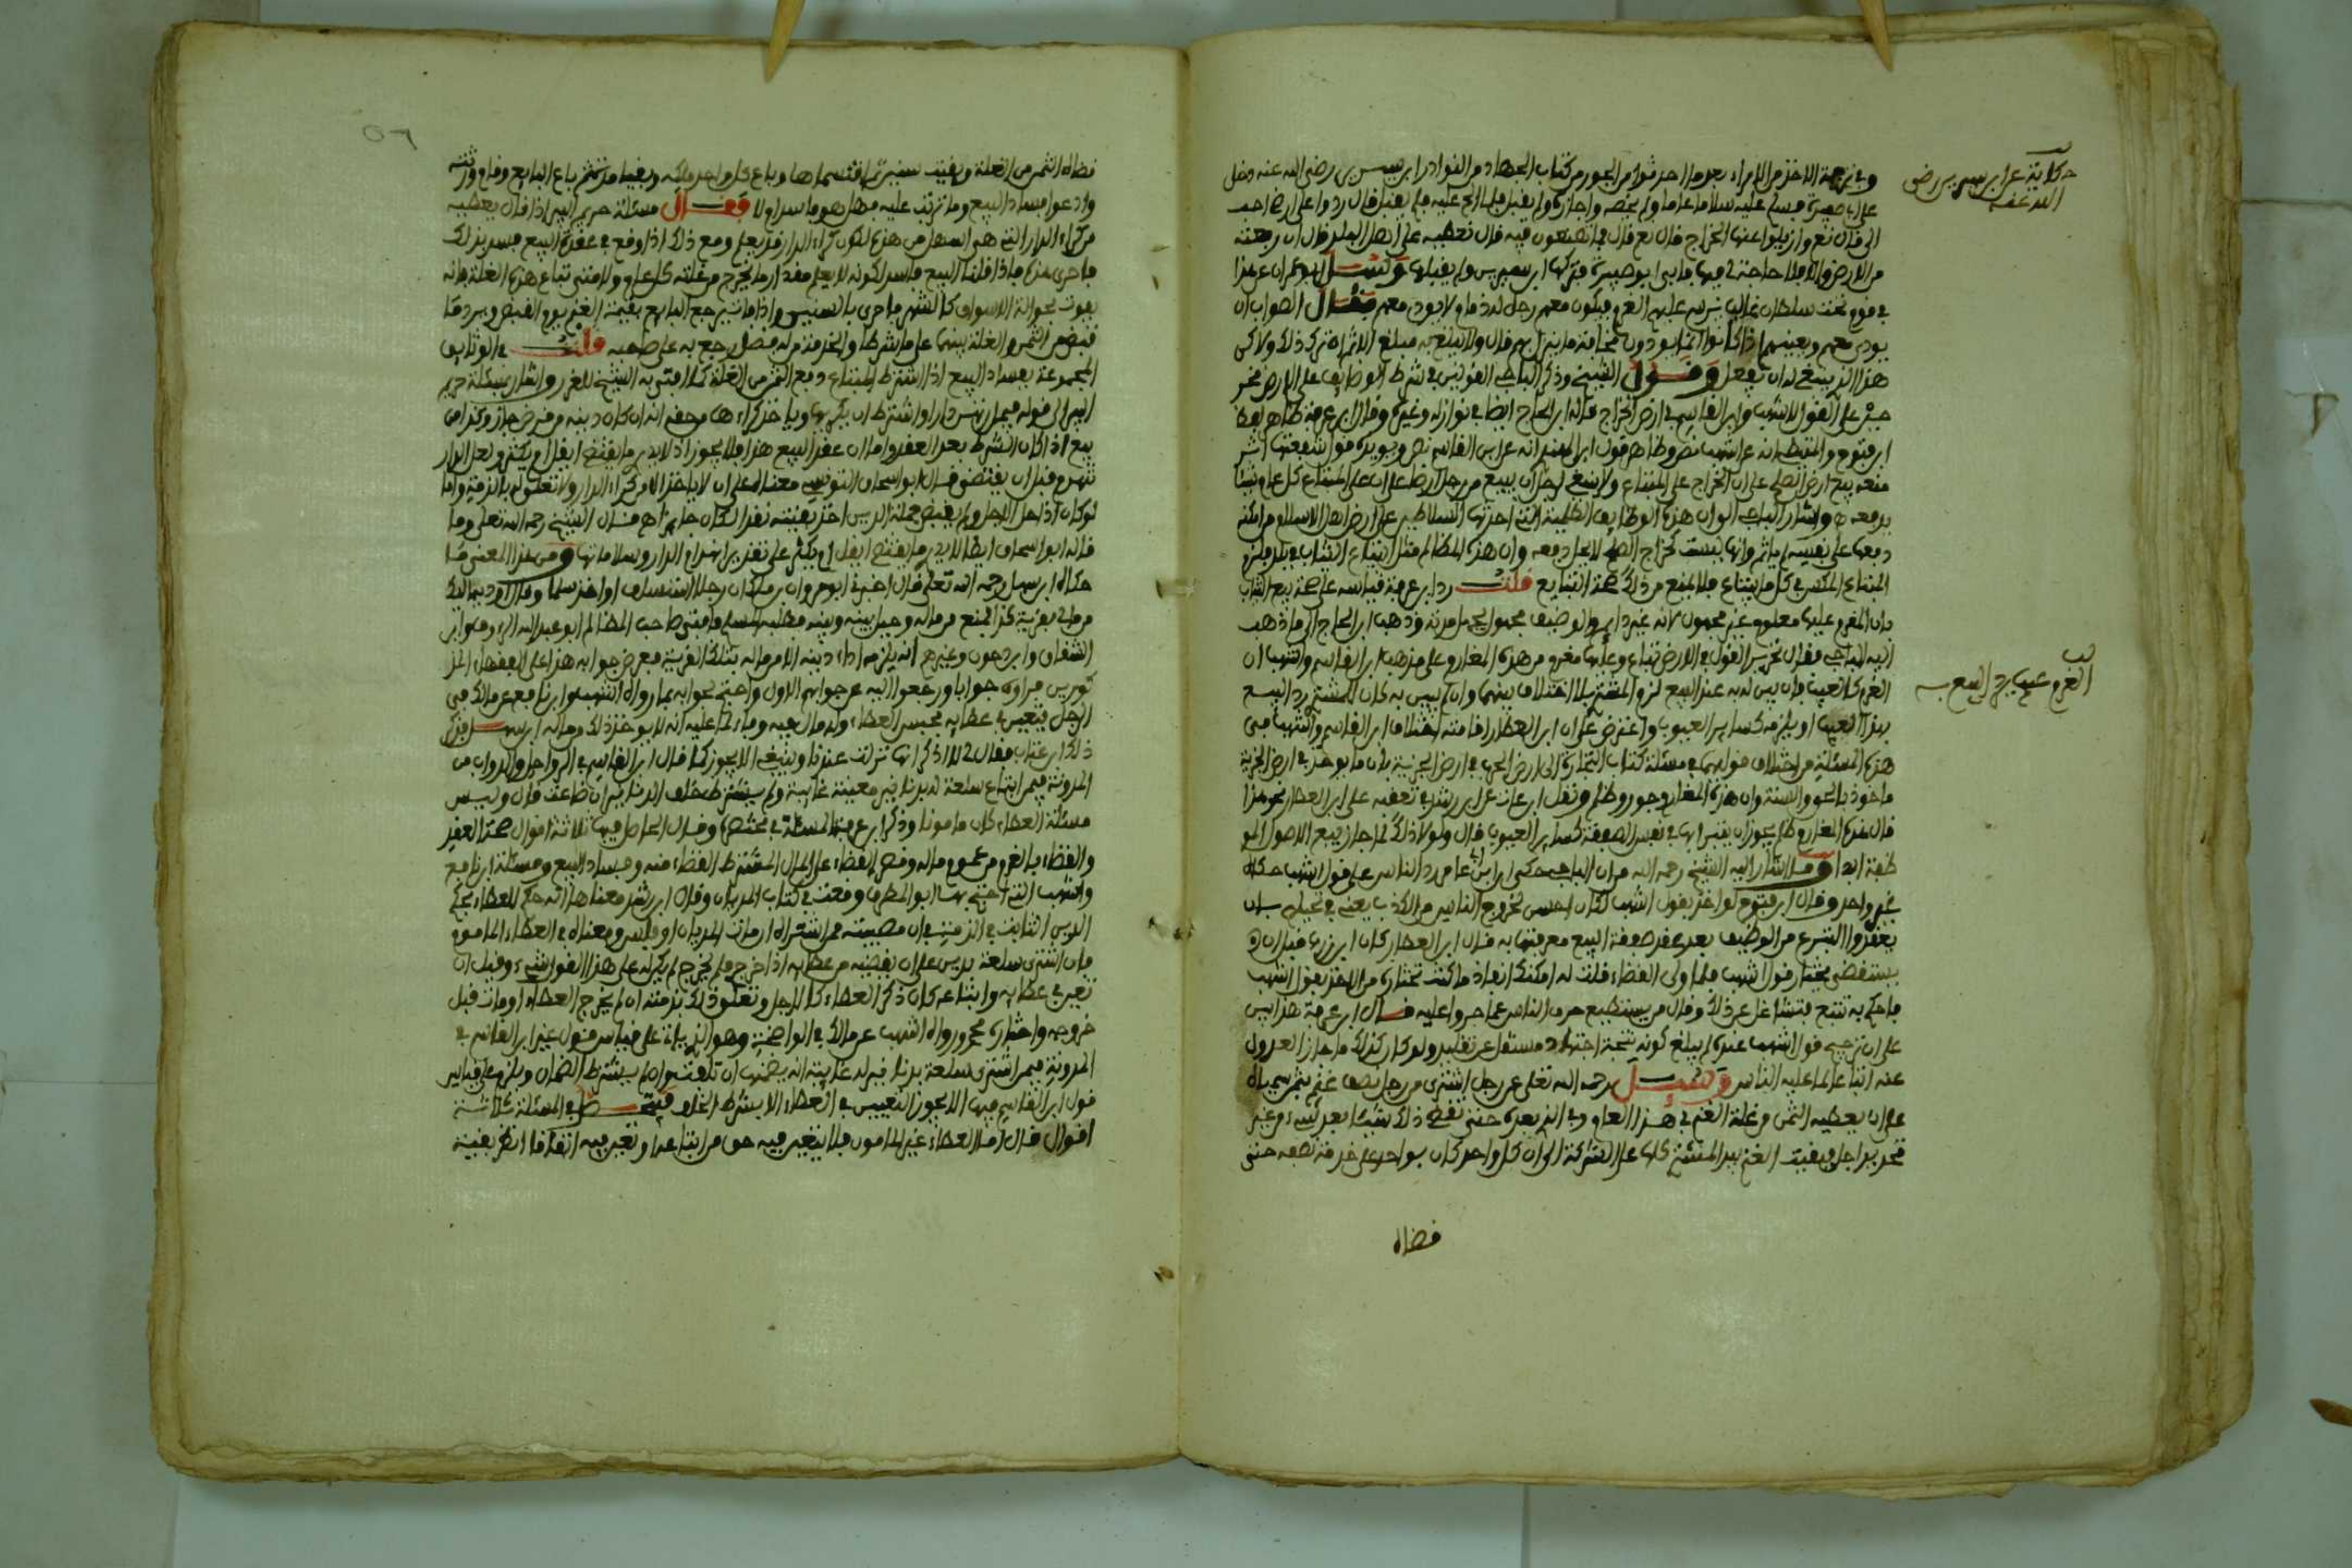 حكاية عن ابن سيرين رضي
الله عنه
وفي ترجمة الاخذ من الامراء بعد ما احدثوا من الجور من كتاب الجهاد من النوادر ابن سيرين رضي الله عنه دخل
على ابن هبيرة فسلم عليه سلاما عاما ولم يخصه واجازه ولم يقبل فلما الح عليه فلم يقبل قال ردوا على ارضا حيث
الى قال نعم وازيلوا عنها الخراج قال نعم قال فما تصنعون فيه قال نعطيه على اهل البلد قال ان رجعته
من الارض والا فلا حاجة لي فيها فابى ابن هبيرة فتركها ابن سيرين ولم يقبلها وسئل ابو عمران عن هذا
في قوم تحت سلطان غالب نزل عليهم الغرم فيكون معهم رجل له ذمام لا يودي معهم فقال الصواب ان
يودي معهم ويعينهم اذا كانوا انما يودون مخافة ما ينزل بهم قال ولا يبلغ به مبلغ الاثم ان ترك ذلك ولاكن
هذا الذي ينبغي له ان يفعل وقول الشيخ وذكر الباجي القولين في شرط الوظائف على الارض
على القول لاشهب وابن القاسم في ارض الخراج قاله ابن الحاج ايضا في نوازله وغيره وقال ابن عرفة ظاهر لفظ
ابن فتوح والمتيطي انه عن اشهب نص وظاهر قول ابن الهندي انه عن ابن القاسم نص ويويده قول
منعه بيع ارض الصلح على ان الخراج على المبتاع ولا ينبغي لرجل ان يبيع من رجل ارضا على ان على المبتاع كل عام شيئا
يدفعه واشار الباجي الى ان هذه الوظائف الظلمية التي احدثها السلاطين على ارض اهل الاسلام من امكنه
دفعها على نفسه لم ياثم وانها ليست كخراج الصلح لا يحل دفعه وان هذه المظالم مثل ابتياع الثياب في بلد يلزم
المبتاع المكس في كل ما يبتاع فلا يمنع من ذلك صحة التبايع قلت رد ابن عرفة قياسه على صحة بيع الثياب
بان المغرم عليها معلوم غير مجهول لانه غير دائم والوظيف مجهول لجهل مدته وذهب ابن الحاج الى ما ذهب
اليه الباجي فقال تحرير القول في الارض تباع وعليها مغرم من هذه المغارم على مذهب ابن القاسم واشهب ان
الغرم عيب يرد البيع به
المغرم كالعيب فان بين له به عند البيع لزم المشتري بلا اختلاف بينهما وان لم يبين به كان للمشتري رد البيع
بهذا العيب او يلزمه كسائر العيوب واعترض على ابن العطار اقامته اختلاف ابن القاسم واشهب في
هذه المسئلة من اختلاف قولهما في مسئلة كتاب التجارة الى ارض الحرب في ارض الجزية بان ما يوخذ في ارض الجزية
ماخوذ بالحق والسنة وان هذه المغارم جور وظلم ونقل ابن عات عن ابن رشد في تعقبه على ابن العطار نحو هذا
قال هذه المغارم ظلم يجوز ان يتبرا بها في نفس الصفقة كسائر العيوب قال ولولا ذلك لما جاز بيع الاصول المو
ظفة ابدا وما اشار اليه الشيخ رحمه الله من ان الباجي حكى ان عامة الناس على قول اشهب حكاه
غير واحد وقال ابن فتوح لو اخذ بقول اشهب لكان احسن لخروج الناس من الكذب يعني في تحيلهم بان
يعقدوا التبرع من الوظيف بعد عقد صفقة البيع معرفتها به قال ابن العطار كان ابن زرب قبل ان
يستقضى يختار قول اشهب فلما ولى القضاء قلت له امكنك انفاذ ما كنت تختاره من الاخذ بقول اشهب
فاحكم به تتبع فتشاغل عن ذلك وقال من يستطيع صرف الناس عما جروا عليه قال ابن عرفة هذا ليس
على ان ترجيح قول اشهب عنده لم يبلغ كونه نتيجة اجتهاد مستقل عن تقليد ولو كان كذلك ما جاز العدول
عنه اتباعا لما عليه الناس وسئل رحمه الله تعلى عن رجل اشترى من رجل نصف غنم بثمن سمياه
على ان يعطيه الثمن من غلة الغنم في هذا العام وفي الذي بعده حتى يقضي ذلك شيئا بعد شيء من غير
تحديد اجل وبقيت الغنم بيد المشتري كلها على الشركة الى ان كل واحد كان يواجر على خدمة نصفه حتى
قضاه
٥٦
قضاه الثمن من الغلة وبقيت سنين ثم اقتسماها وباع كل واحد ماله وبقيا مدة ثم باع البايع وقام ورثته
وادعوا فساد البيع وما ترتب عليه فهل هو فاسد ام لا فقال مسئلة حريم البير اذا قال يعطيه
من كراء الدار التي هي اسهل من هذه لكون كراء الدار قد يعلم ومع ذلك اذا وقع في عقدة البيع فسد بذلك
فاحرى هذه فاذا قلنا البيع فاسد لكونه لا يعلم مقدار ما يخرج من غلته كل عام ولا متى تباع هذه الغلة فانه
يفوت بحوالة الاسواق كالشهر فاحرى بالسنين واذا فات يرجع البايع بقيمة الغنم يوم القبض ويرد ما
قبض من الثمن والغلة بينهما على ما شرطا والخدمة من له فضل رجع به على صاحبه قلت في الوثايق
المجموعة بفساد البيع اذا اشترط المبتاع دفع الثمن من الغلة كما افتى به الشيخ للغرر واشار بمسئلة حريم
البير الى قوله فيمن ارتهن دارا واشترط ان يكريها وياخذ كراءها من حقه انه ان كان دينه من قرض جاز وكذا من
بيع اذا كان الشرط بعد العقد واما ان عقد البيع هذا فلا يجوز اذ لا يدري ما يقتضي ايقل ام يكثر ولعل الدار
تنهدم قبل ان يقتضي قال ابو اسحاق التونسي معناه على ان لا ياخذ الا من كراء الدار ولا تعلق له بالذمة واما
لو كان اذا حل الاجل ولم يقبض جملة الدين اخذ بقيته نقدا لكان جايزا اه قال الشيخ رحمه الله تعلى وما
قاله ابو اسحاق ايضا لا يدري ما يقتضي ايقل ام يكثر على تقدير انهدام الدار وسلامتها ومن هذا المعنى ما
حكاه ابن سهل رحمه الله تعلى قال اخبرني ابو مروان بن مالك ان رجلا استسلف او اخذ سلما وقال اوديه لك
من مالي بقرية كذا فمنع من ماله وحيل بينه وبينه فطلبه المسلم فافتى صاحب المظالم ابو عبد الله
الشقاق وابن دحون وغيرهم انه يلزمه اداء دينه الا من ماله بتلك القرية
الرجل يتعين في عطايه فيحبس العطاء وله مال فيه وفاء لما عليه انه لا يوخذ ذلك من ماله ابن سهل
ذلك ابن عتاب فقال لي لا اذكر انها نزلت عندنا وينبغي الا يجوز كما قال ابن القاسم في الرواحل والدواب من
المدونة فيمن ابتاع سلعة بدنانير معينة غايبة ولم يشترط خلف الدنانير ان ضاعت قال وليس
مسئلة العطاء كان مامونا وذكر ابن عرفة المسئلة في مختصره وقال الحاصل فيها ثلاثة اقوال صحة العقد
والقضاء بالغرم من عموم ماله وقصر القضاء على المال المشترط القضاء منه وفساد البيع ومسئلة ابن نافع
واشهب التي احتج بها ابو المطرف وقعت في كتاب المديان وقال ابن رشد معناها انه حكم للعطاء بحكم
الدين الثابت في الذمة في ان مصيبته ممن اشتراه ان مات المديان او فلس ومعناه في العطاء المامون
فان اشترى سلعة بدين على ان يقضيه من عطايه اذا خرج فلم يخرج لم يكن له على هذا القول شيء وقيل ان
تعين في عطايه وابتاعه كان ذكر العطاء كالاجل وتعلق ذلك بذمته ان لم يخرج العطاء او مات قبل
خروجه واختاره محمد ورواه اشهب عن مالك في الواضحة وهو الذي ياتي على قياس قول غير ابن القاسم في
المدونة فيمن اشترى سلعة بدنانير له غايبة انه يضمنها ان تلفت وان لم يشترط الضمان ويلزم على قياس
قول ابن القاسم فيها الا يجوز التعيين في العطاء الا بشرط الخلف فيتحصل في المسئلة ثلاثة
اقوال قال اما العطاء غير المامون فلا يتعين فيه حق من ابتاعه او تعين فيه اتفاقا انظر بقيته